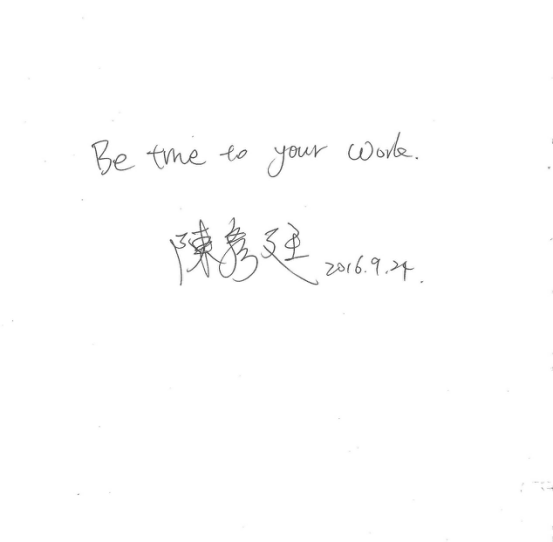 Be true to your work.
陳彥廷 2016.9.24.